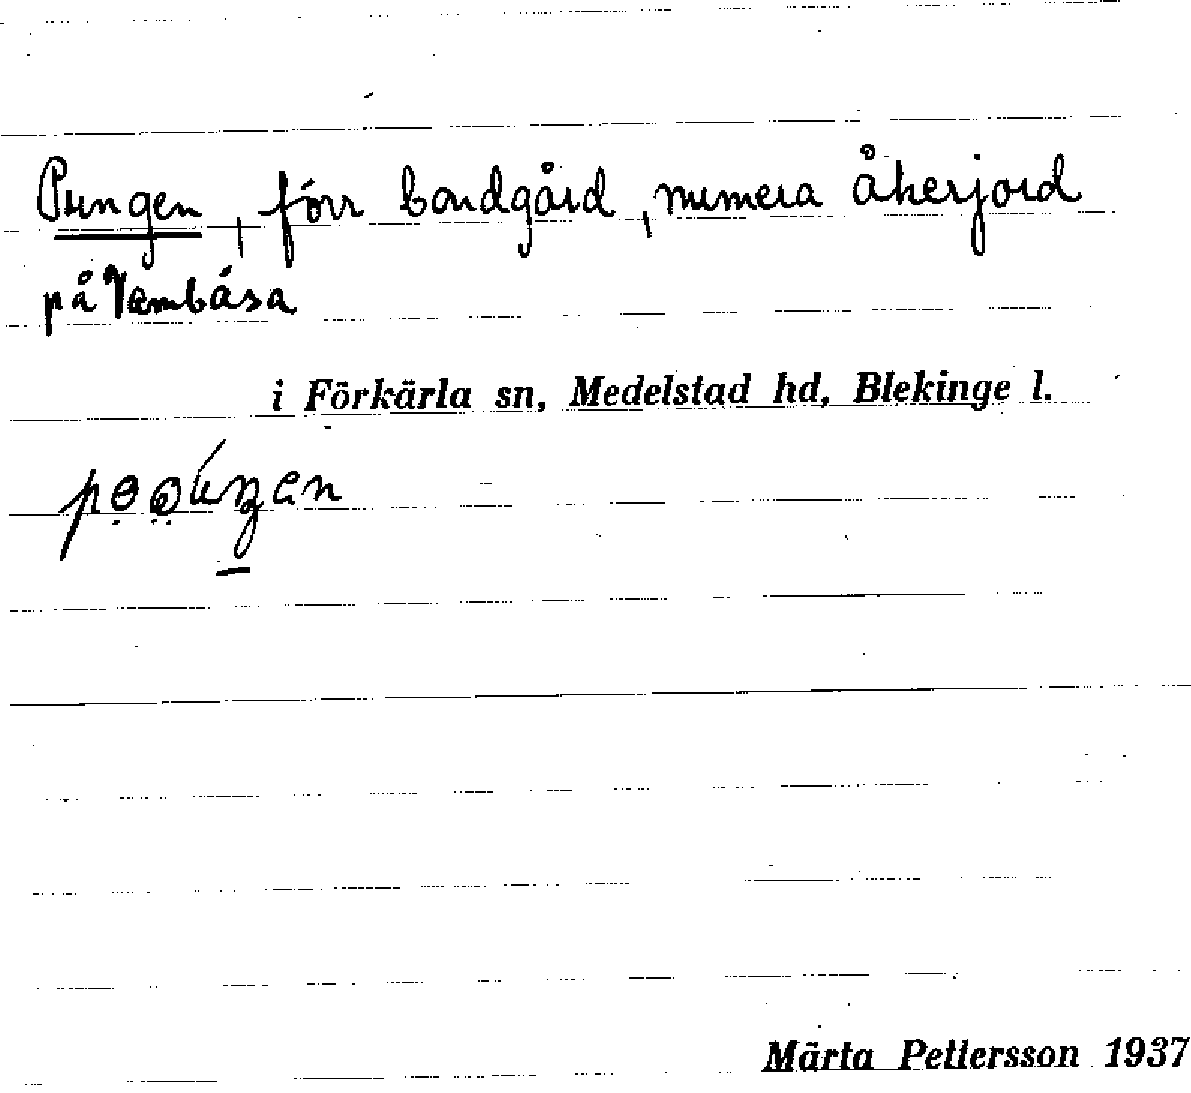 Pungen, förr bondgård, numera åkerjord
på Vambåsa
i Förkärla sn, Medelstad hd, Blekinge l.
Märta Pettersson 1937